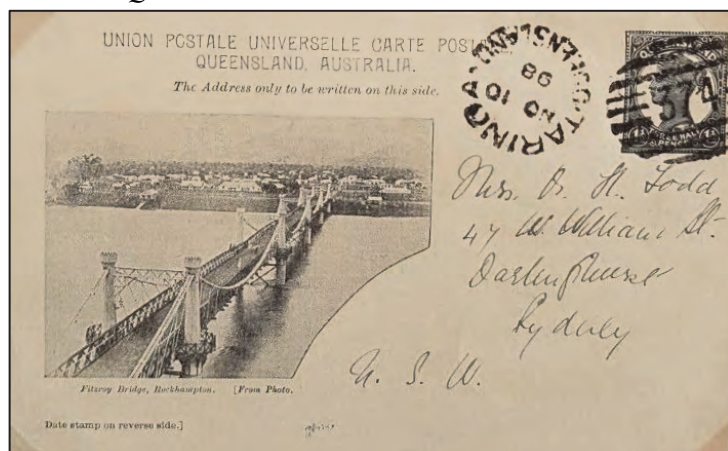 UNION POSTALE UNIVERSELLE CARTE POS
QUEENSLAND, AUSTRALIA.
The Address only to be written on this side.
TARINGA QUEENSLAND
NO 10
98
Mrs. B. H. Todd
47 W. William St.
Darlinghurst
Sydney
N. S. W.
Fitzroy Bridge, Rockhampton. [From Photo.
Date stamp on reverse side.]